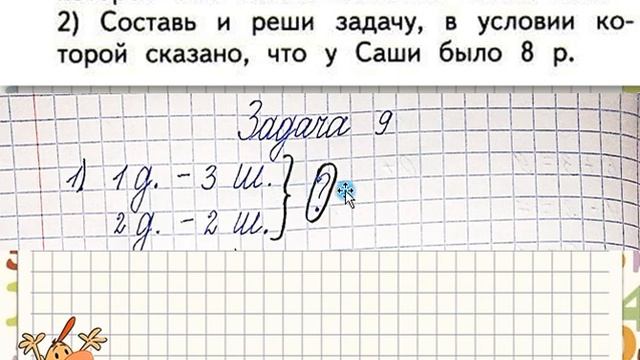 2) Составь и реши задачу, в условии ко-
торой сказано, что у Саши было 8 р.
Задача 9
1) 1 д. - 3 ш. } ?
2 д. - 2 ш.